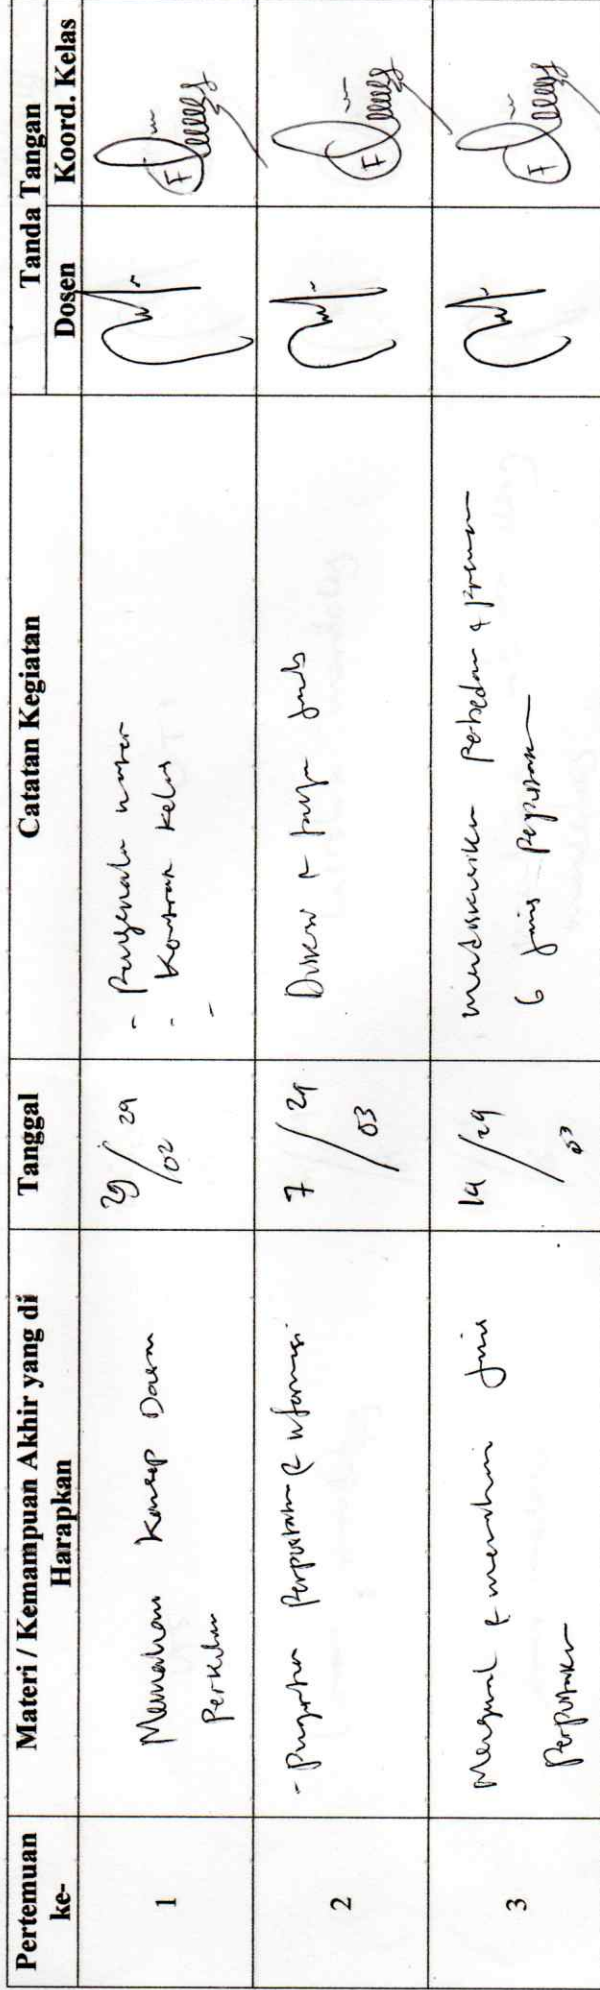 Pertemuan ke-
Materi / Kemampuan Akhir yang di Harapkan
Tanggal
Catatan Kegiatan
Tanda Tangan
Dosen
Koord. Kelas
1
Memahami Konsep Dasar
29/02
- Pengenalan
- Kontrak Kelas
-
2
- Perpustakaan & Informasi
7/03
Diskusi
3
Mengenal & memahami Jenis
Perpustakaan
14/03
mendiskusikan Perbedaan & Peranan
6 Jenis Perpustakaan